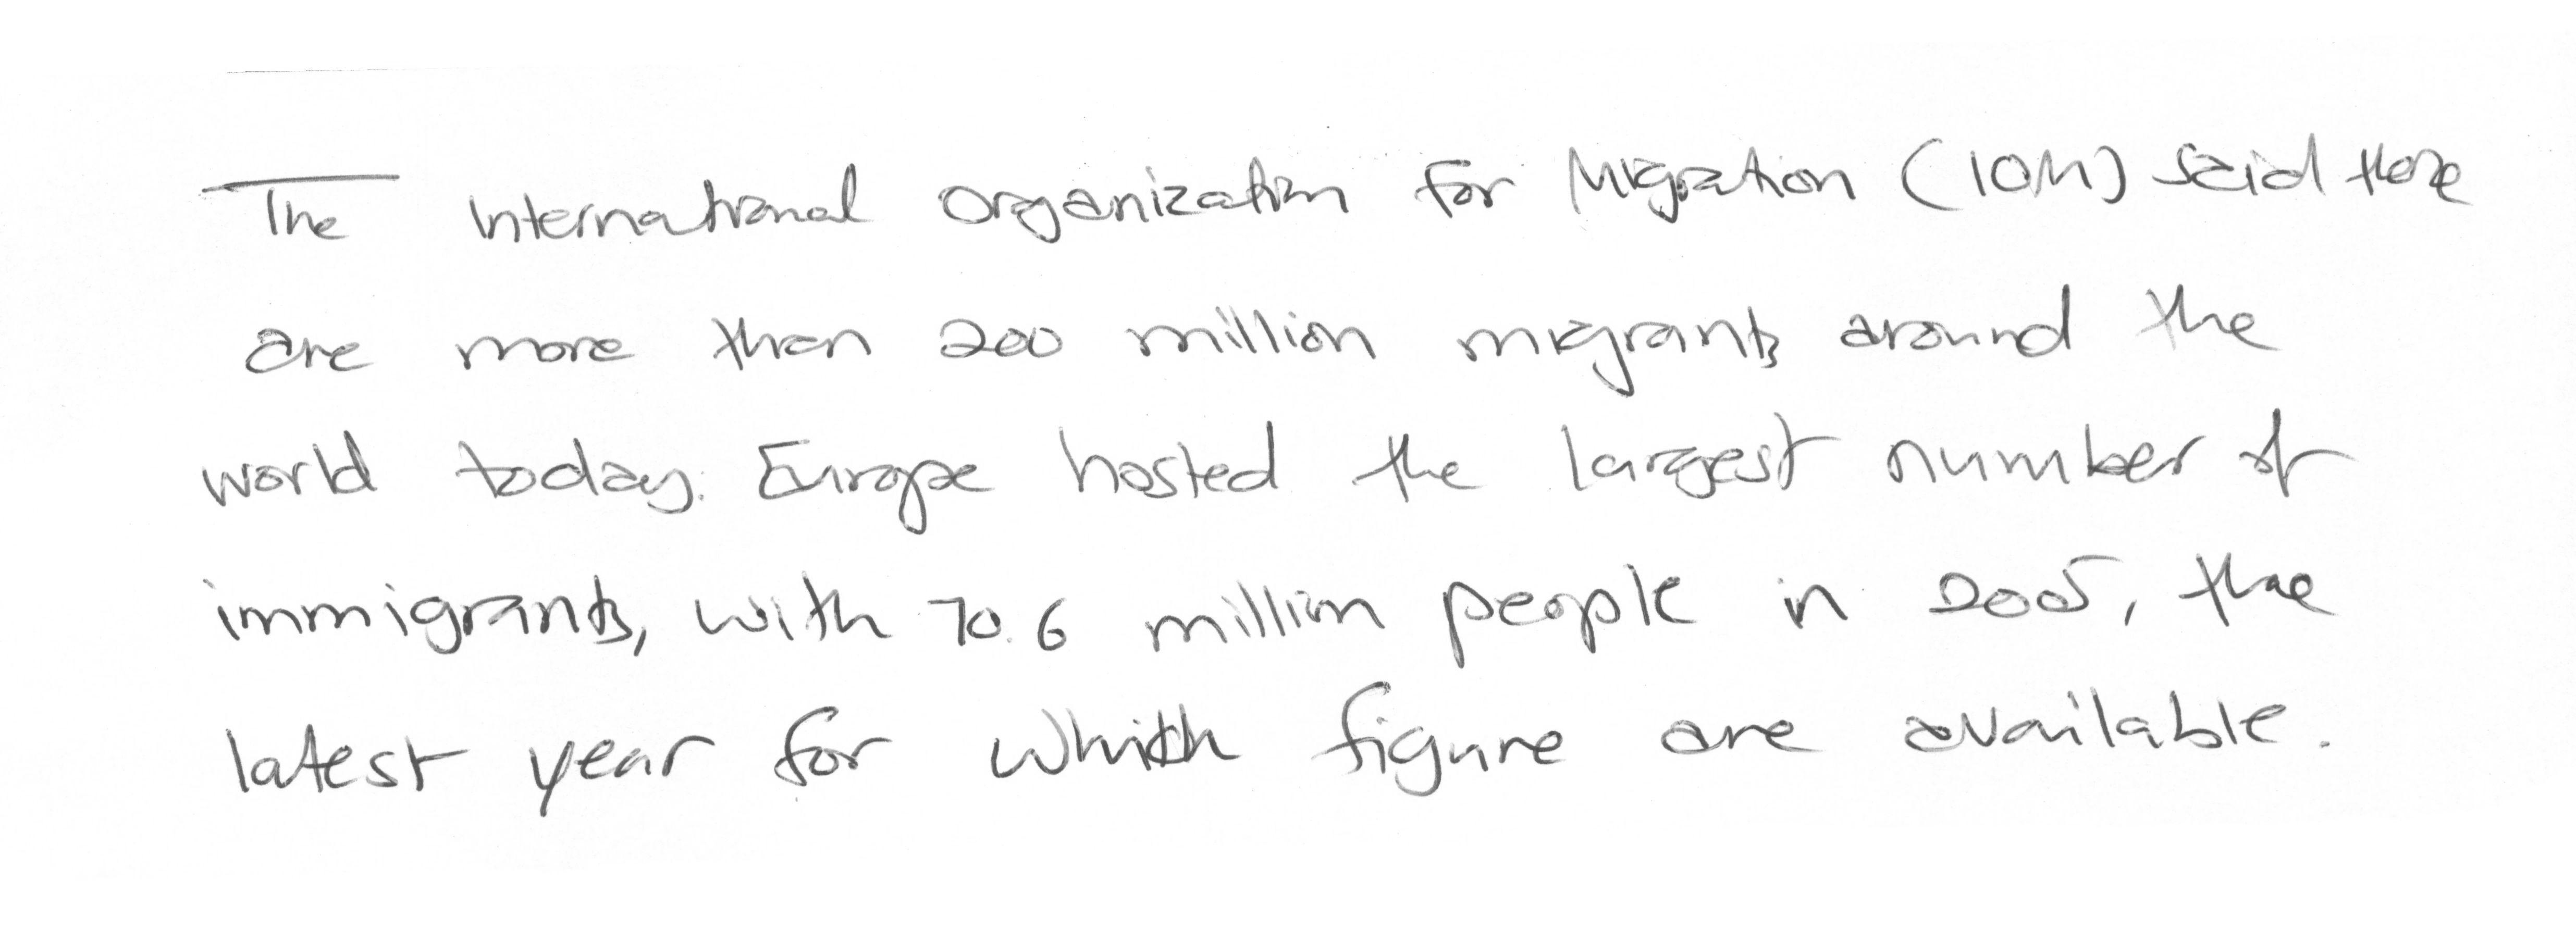 The International Organization for Migration (IOM) said there
are more than 200 million migrants around the
world today. Europe hosted the largest number of
immigrants, with 70.6 million people in 2005, the
latest year for which figure are available.